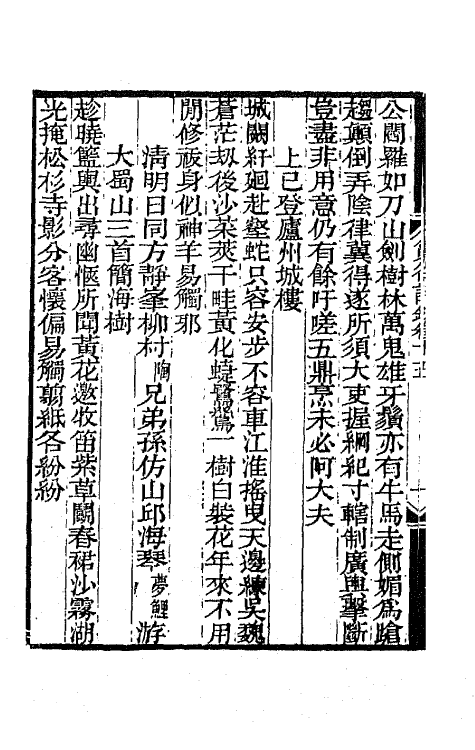 公閻羅如刀山劍樹林萬鬼雄牙鬚亦有牛馬走側媚為蹌
趨顛倒弄陰律冀得遂所須大吏握綱紀寸轄制廣輿擊斷
豈盡非用意仍有餘吁嗟五鼎烹未必阿大夫
上巳登廬州城樓
城闕紆廻赴壑蛇只容安步不容車江淮搖曳天邊練吳魏
蒼茫刼後沙菜莢千畦黃化蟯鷺鷥一樹白裝花年來不用
閒修祓身似神羊易觸邪
清明日同方靜峯柳村陶兄弟孫仿山邱海琴夢鯉游
大蜀山三首簡海樹
趁曉籃輿出尋幽愜所聞黃花邀牧笛紫草鬭春裙沙霧湖
光掩松杉寺影分客懷偏易觸翦紙各紛紛